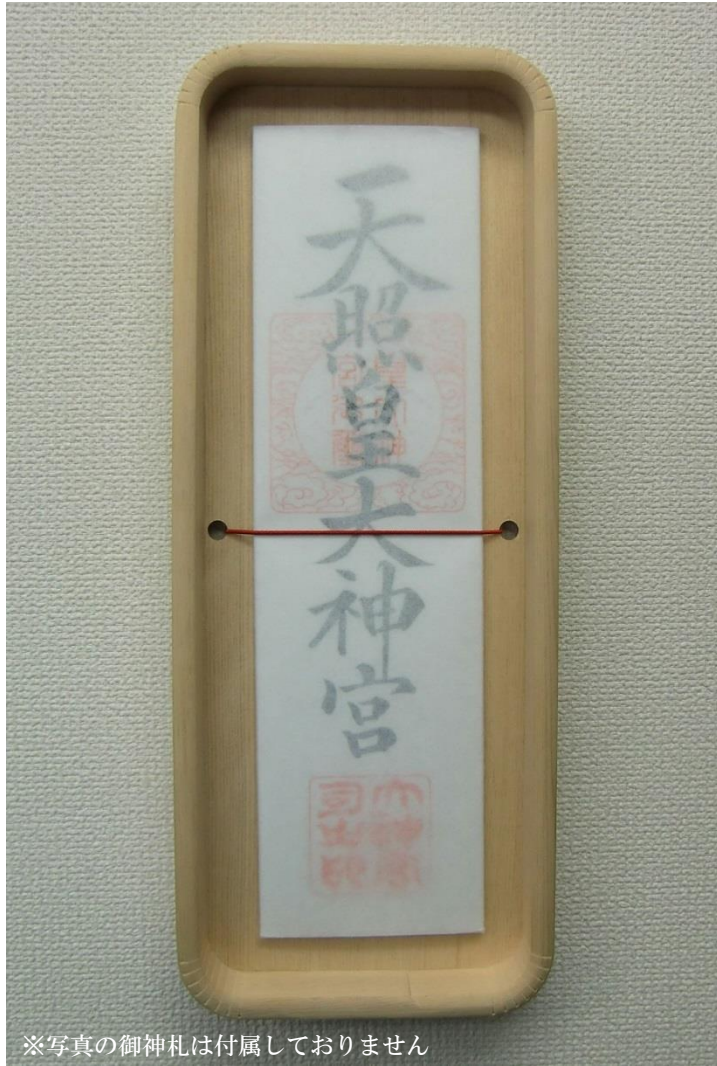 天照皇大神宮
※写真の御神札は付属しておりません